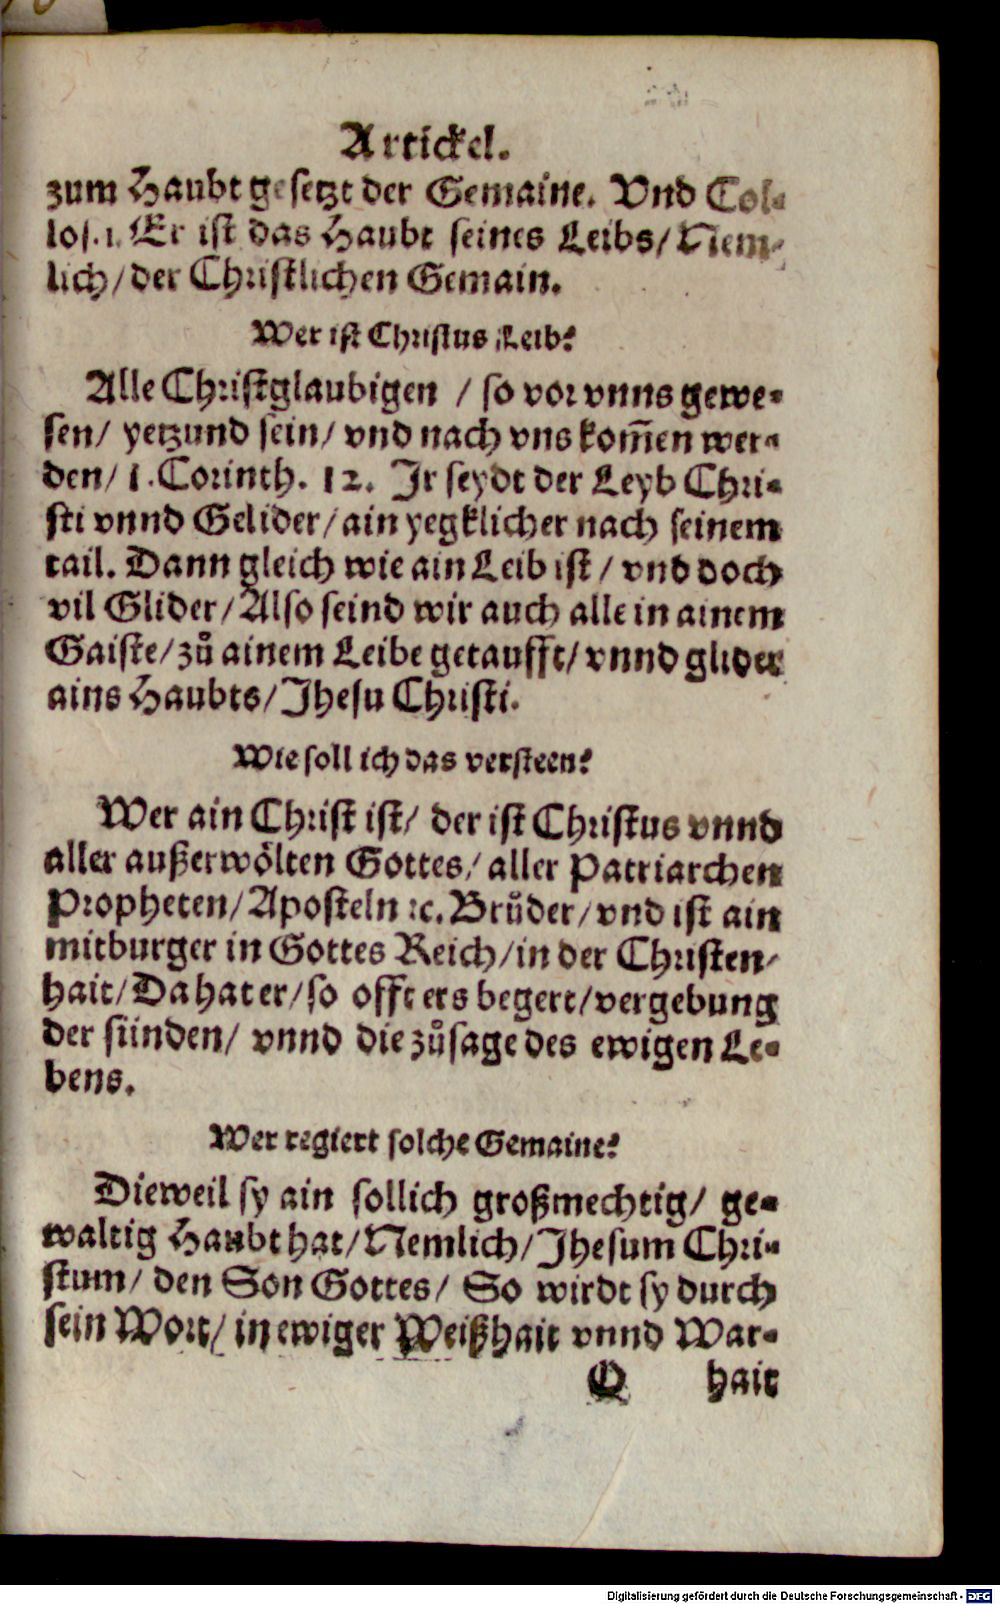 Artickel.
zum Haubt gesetzt der Gemaine. Vnd Col-
los. 1. Er ist das Haubt seines Leibs/ Nem-
lich/ der Christlichen Gemain.
Wer ist Christus Leib?
Alle Christglaubigen / so vor vnns gewe-
sen/ yetzund sein/ vnd nach vns kom̅en wer-
den/ 1. Corinth. 12. Jr seydt der Leyb Chri-
sti vnnd Gelider/ ain yegklicher nach seinem
tail. Dann gleich wie ain Leib ist/ vnd doch
vil Glider/ Also seind wir auch alle in ainem
Gaiste/ zů ainem Leibe getaufft/ vnnd glider
ains Haubts/ Jhesu Christi.
Wie soll ich das versteen?
Wer ain Christ ist/ der ist Christus vnnd
aller außerwölten Gottes/ aller Patriarchen
Propheten/ Aposteln ꝛc. Brůder/ vnd ist ain
mitburger in Gottes Reich/ in der Christen-
hait/ Da hat er/ so offt ers begert/ vergebung
der sünden/ vnnd die zůsage des ewigen Le-
bens.
Wer regiert solche Gemaine?
Dieweil sy ain sollich großmechtig/ ge-
waltig Haubt hat/ Nemlich/ Jhesum Chri-
stum/ den Son Gottes/ So wirdt sy durch
sein Wort/ in ewiger Weißhait vnnd War-
Q hait
Digitalisierung gefördert durch die Deutsche Forschungsgemeinschaft - DFG